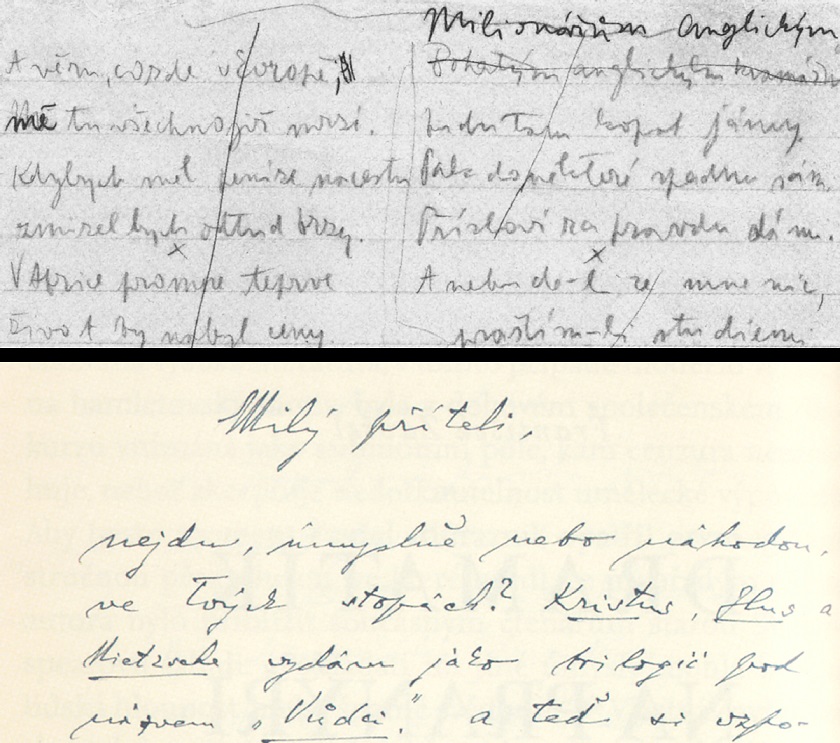 A věru, co zde v Evropě,
mě tu všechno již mrzí.
Kdybych měl peníze na cestu
zmizel bych odtud brzy.
x
V Africe pro mne teprve
život by nabyl ceny.
Milionářům anglickým
Bohatým anglickým kramářům
budu tam kopat jámy.
Pak do některé spadnu sám.
Přísloví za pravdu dá mi.
x
A nebude-li ze mne nic,
praštím-li studiemi
Milý příteli,
nejdu, úmyslně nebo náhodou,
ve Tvých stopách? Kristus, Hus a
Nietzsche vydám jako trilogii pod
názvem „Vůdci.“ a teď si vzpo-